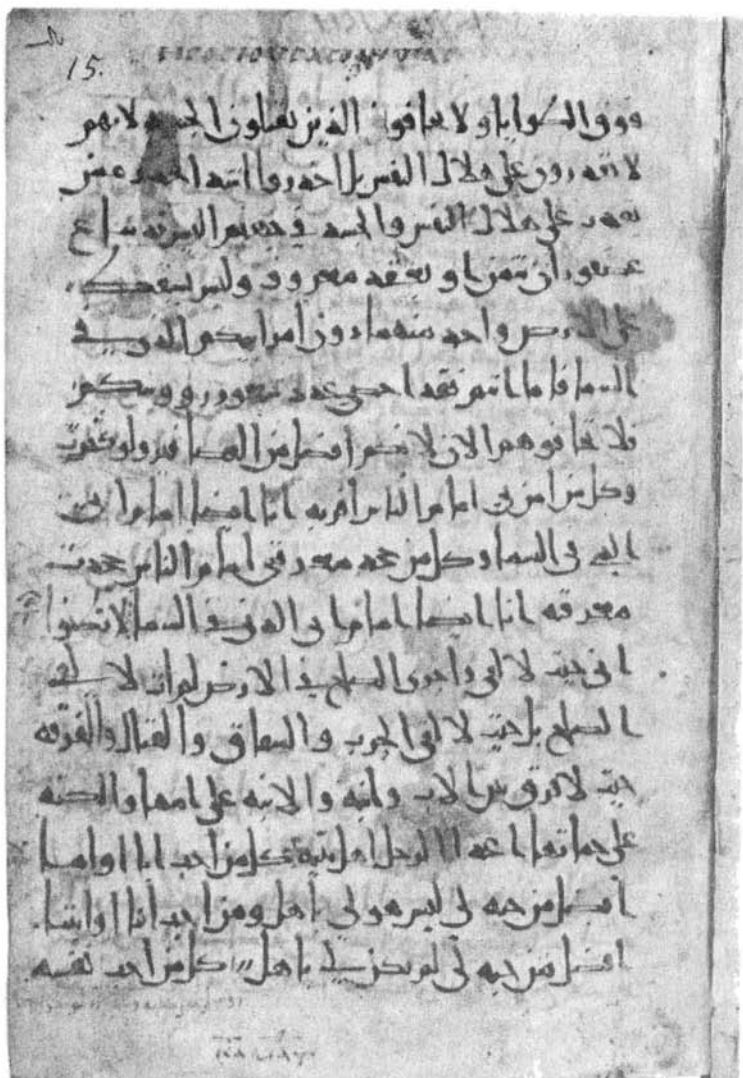 15.
فوق الكوايا ولا تخافون الذين يقتلون الجسد لانهم
لا يقدرون على هلاك النفس بل احذروا
يقدر على هلاك النفس والجسد في جهنم اليس
معروف وليس يسقط
على الارض واحد منهما دون امر ابيكم الذي في
السما فاما انتم فقد احصي عدد شعور رووسكم
فلا تخافوهم الان لانكم افضل من العصافير ولو كثرت
وكل من امن بي امام الناس اقر به انا ايضا امام ابي
الذي في السما وكل من جحد معرفتي امام الناس جحدت
معرفته انا ايضا امام ابي الذي في السما لا تظنوا
اني جيت لالقي واجري الصلح في الارض لم ات لالقي
الصلح بل جيت لالقي الحرب والشقاق والقتال والفرقه
جيت لافرق بين الاب وابنه والابنه على امها والكنه
على حماتها اعدا الرجل اهل بيته كل من احب ابا او اما
افضل من حبه لي ليس هو لي باهل ومن احب ابنا او ابنتا
افضل من حبه لي لم يكن لي باهل كل من احب نفسه